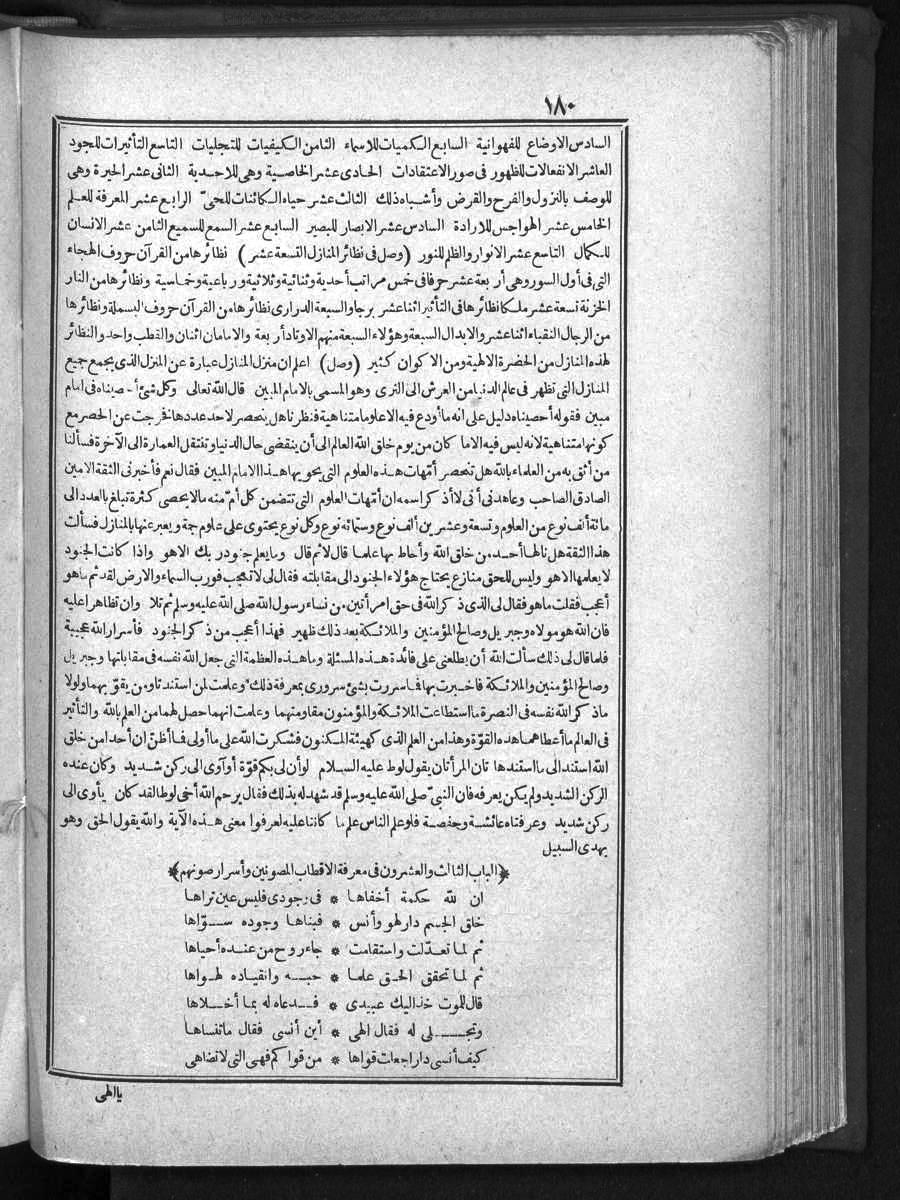 ١٨٠
السادس الاوضاع للفهوانية السابع الكميات للاسماء الثامن الكيفيات للتجليات التاسع التأثيرات للجود
العاشر الانفعالات للظهور فى صور الاعتقادات الحادى عشر الخاصية وهى للاحدية الثانى عشر الحيرة وهى
للوصف بالنزول والفرح والقرض وأشباه ذلك الثالث عشر حياه الكائنات للحىّ الرابع عشر المعرفة للعلم
الخامس عشر الهواجس للارادة السادس عشر الابصار للبصير السابع عشر السمع للسميع الثامن عشر الانسان
للكمال التاسع عشر الانوار والظلم للنور (وصل فى نظائر المنازل التسعة عشر) نظائرها من القرآن حروف الهجاء
التى فى أول السور وهى أربعة عشر حرفا فى خمس مراتب أحدية وثنائية وثلاثية ورباعية وخماسية ونظائرها من النار
الخزنة تسعة عشر ملكا نظائرها فى التأثير اثنا عشر برجا والسبعة الدرارى نظائرها من القرآن حروف البسملة ونظائرها
من الرجال النقباء اثنا عشر والابدال السبعة وهؤلاء السبعة منهم الاوتاد أربعة والامامان اثنان والقطب واحد والنظائر
لهذه المنازل من الحضرة الالهية ومن الاكوان كثير (وصل) اعلم ان منزل المنازل عبارة عن المنزل الذى يجمع جميع
المنازل التى تظهر فى عالم الدنيا من العرش الى الثرى وهو المسمى بالامام المبين قال الله تعالى وكل شئ أحصيناه فى امام
مبين فقوله أحصيناه دليل على انه ما أودع فيه الاعلوما متناهية فنظرنا هل ينحصر لاحد عددها فخرجت عن الحصر مع
كونها متناهية لانه ليس فيه الاما كان من يوم خلق الله العالم الى أن ينقضى حال الدنيا وتنتقل العمارة الى الآخرة فسألنا
من أثق به من العلماء بالله هل تنحصر أمّهات هذه العلوم التى يحويها هذا الامام المبين فقال نعم فأخبرنى الثقة الامين
الصادق الصاحب وعاهدنى أنى لا أذكر اسمه ان أمّهات العلوم التى تتضمن كل أمّ منه مالا يحصى كثرة تبلغ بالعدد الى
مائة ألف نوع من العلوم وتسعة وعشرين ألف نوع وستمائة نوع وكل نوع يحتوى على علوم جمة ويعبر عنها بالمنازل فسألت
هذا الثقة هل نالها أحد من خلق الله وأحاط بها علما قال لا ثم قال وما يعلم جنود ربك الا هو واذا كانت الجنود
لا يعلمها الا هو وليس للحق منازع يحتاج هؤلاء الجنود الى مقابلته فقال لى لا تعجب فورب السماء والارض لقد ثم ما هو
أعجب فقلت ما هو فقال لى الذى ذكر الله فى حق امرأتين من نساء رسول الله صلى الله عليه وسلم ثم تلا وان تظاهرا عليه
فان الله هو مولاه وجبريل وصالح المؤمنين والملائكة بعد ذلك ظهير فهذا أعجب من ذكر الجنود فأسرار الله عجيبة
فلما قال لى ذلك سألت الله أن يطلعنى على فائدة هذه المسئلة وما هذه العظمة التى جعل الله نفسه فى مقابلتها وجبريل
وصالح المؤمنين والملائكة فاخبرت بها فما سررت بشئ سرورى بمعرفة ذلك وعلمت لمن استندتا ومن يقوّيهما ولولا
ماذكر الله نفسه فى النصرة ما استطاعت الملائكة والمؤمنون مقاومتهما وعلمت انهما حصل لهما من العلم بالله والتأثير
فى العالم ما أعطاهما هذه القوّة وهذا من العلم الذى كهيئة المكنون فشكرت الله على ما أولى فما أظنّ ان أحدا من خلق
الله استند الى ما استندها تان المرأتان يقول لوط عليه السلام لوأن لى بكم قوّة أو آوى الى ركن شديد وكان عنده
الركن الشديد ولم يكن يعرفه فان النبىّ صلى الله عليه وسلم قد شهد له بذلك فقال يرحم الله أخى لوطا لقد كان يأوى الى
ركن شديد وعرفتاه عائشة وحفصة فلو علم الناس علم ما كانتا عليه لعرفوا معنى هذه الآية والله يقول الحق وهو
يهدى السبيل
﴿الباب الثالث والعشرون فى معرفة الاقطاب المصونين وأسرار صونهم﴾
ان لله حكمة أخفاها * فى وجودى فليس عين تراها
خلق الجسم دار لهو وأنس * فبناها وجوده سوّاها
ثم لما تعدّلت واستقامت * جاء روح من عنده أحياها
ثم لما تحقق الحق علما * حبه وانقياده لهواها
قال للموت خذ اليك عبيدى * فدعاه له بما أخلاها
وتجلى له فقال الهى * أين أنسى فقال ما تنساها
كيف أنسى دارا جعلت قواها * من قوا كم فهى التى لا تضاهى
ياالهى